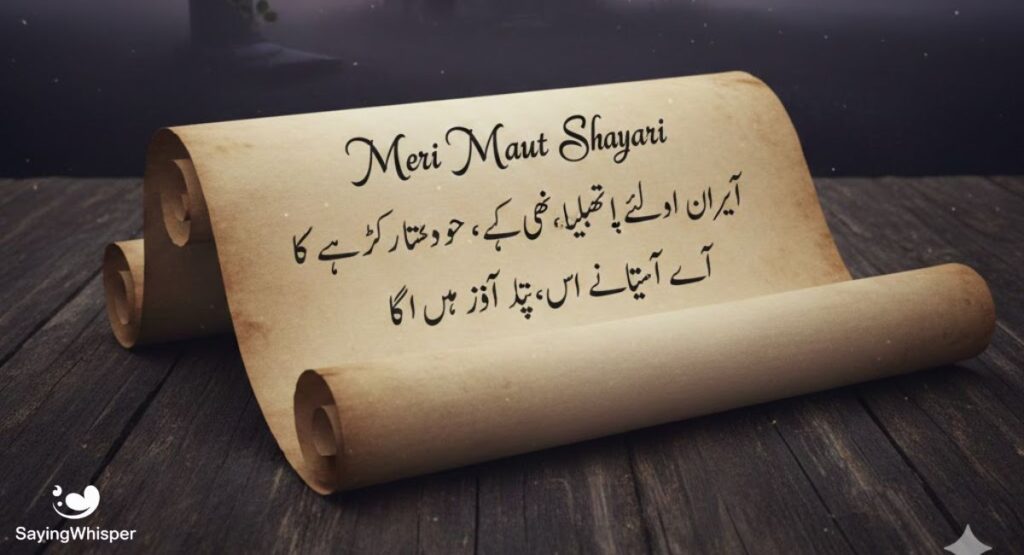 Meri Maut Shayari
آیران اولئے پا تھبلیا، نھی کے، حو دعتار کڑ ہے کا
آے آستانے اس، پتلا آؤز ہس اگا
SayingWhisper